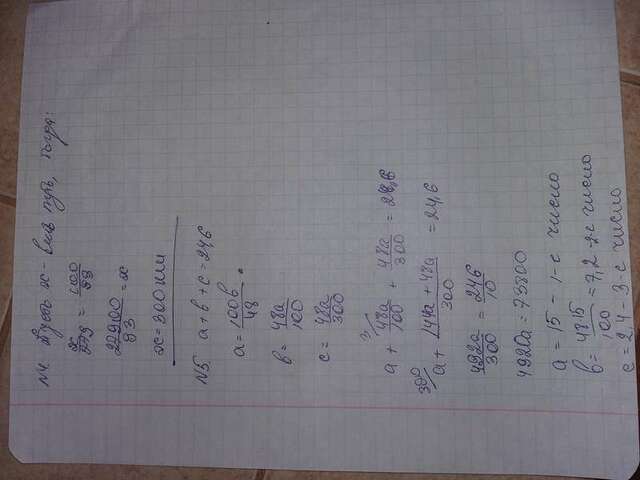 №4. Пусть x - весь путь, тогда:
x/279 = 100/93
27900/93 = x
x = 300 км
№5. a + b + c = 24,6
a = 100b/48
b = 48a/100
c = 48a/300
a + 48a/100 + 48a/300 = 24,6
a + (144a + 48a)/300 = 24,6
492a/300 = 246/10
4920a = 73800
a = 15 - 1-е число
b = 48·15/100 = 7,2 - 2-е число
c = 2,4 - 3-е число